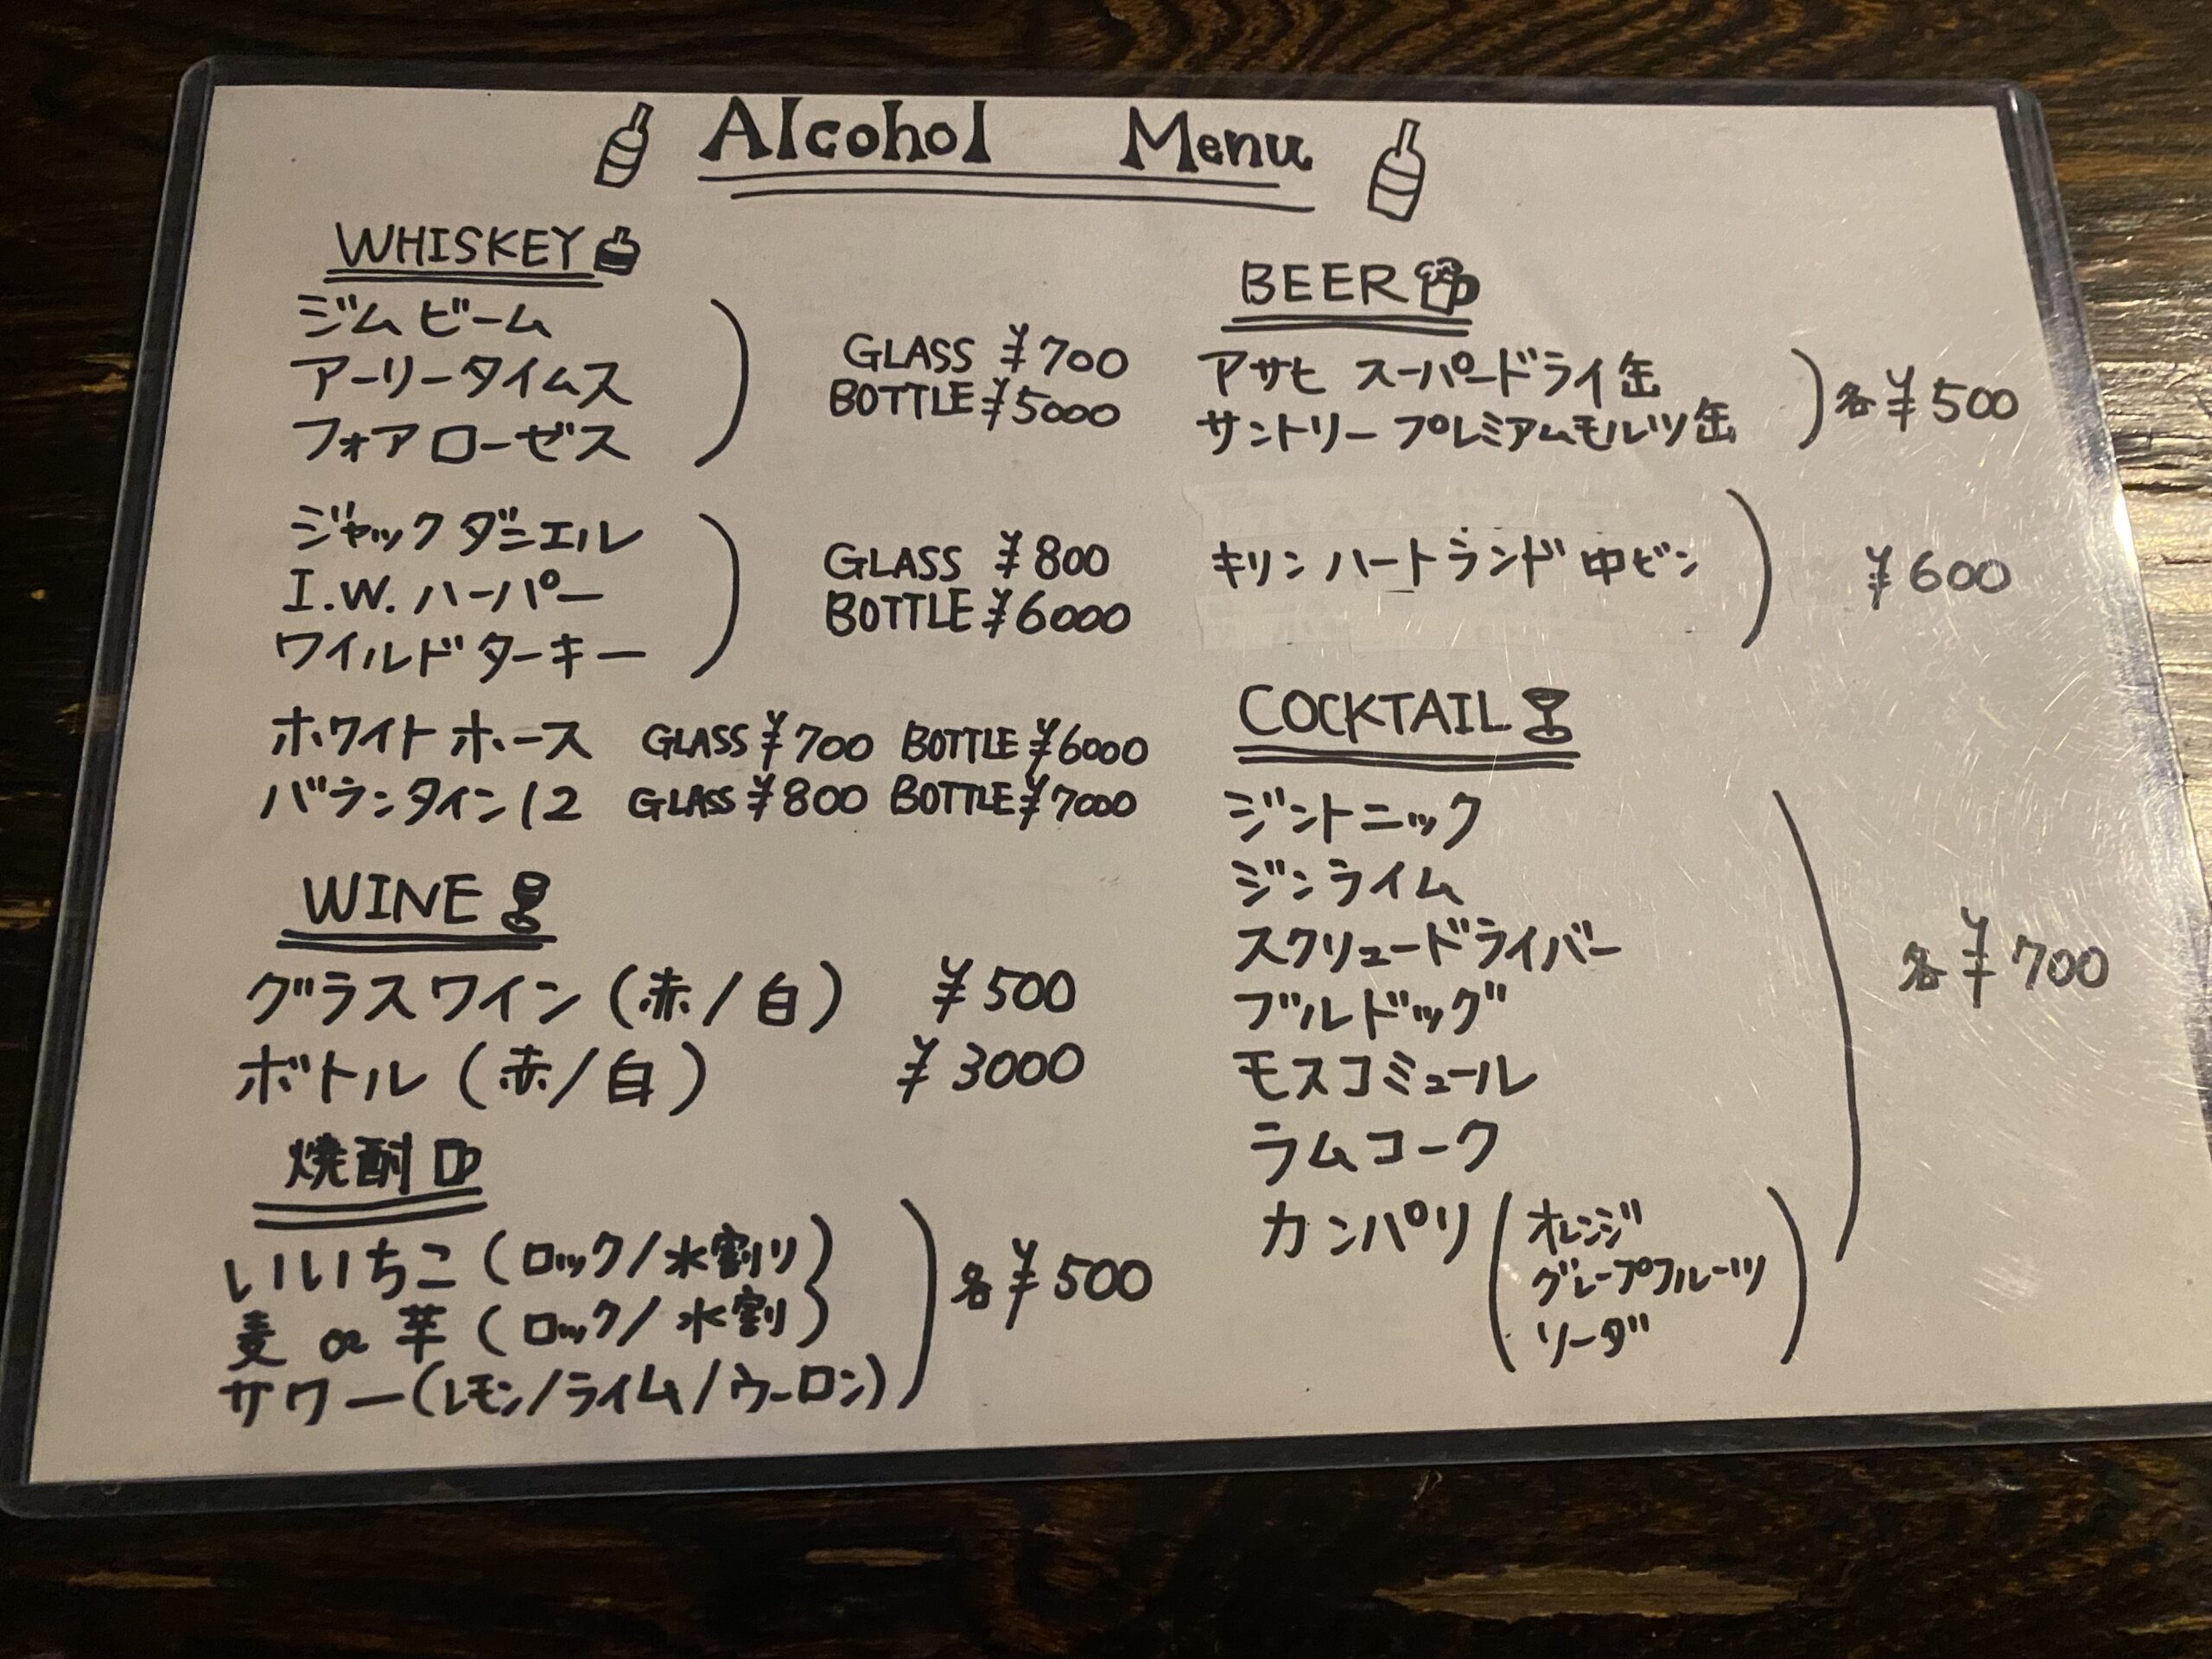 Alcohol Menu
WHISKEY
ジムビーム
アーリータイムス
フォアローゼス
GLASS ¥700
BOTTLE ¥5000
ジャックダニエル
I.W.ハーパー
ワイルドターキー
GLASS ¥800
BOTTLE ¥6000
ホワイトホース GLASS ¥700 BOTTLE ¥6000
バランタイン12 GLASS ¥800 BOTTLE ¥7000
WINE
グラスワイン(赤/白) ¥500
ボトル(赤/白) ¥3000
焼酎
いいちこ(ロック/水割り)
麦 or 芋(ロック/水割)
サワー(レモン/ライム/ウーロン)
各¥500
BEER
アサヒ スーパードライ缶
サントリー プレミアムモルツ缶
各¥500
キリン ハートランド 中ビン ¥600
COCKTAIL
ジントニック
ジンライム
スクリュードライバー
ブルドッグ
モスコミュール
ラムコーク
カンパリ(オレンジ
グレープフルーツ
ソーダ)
各¥700